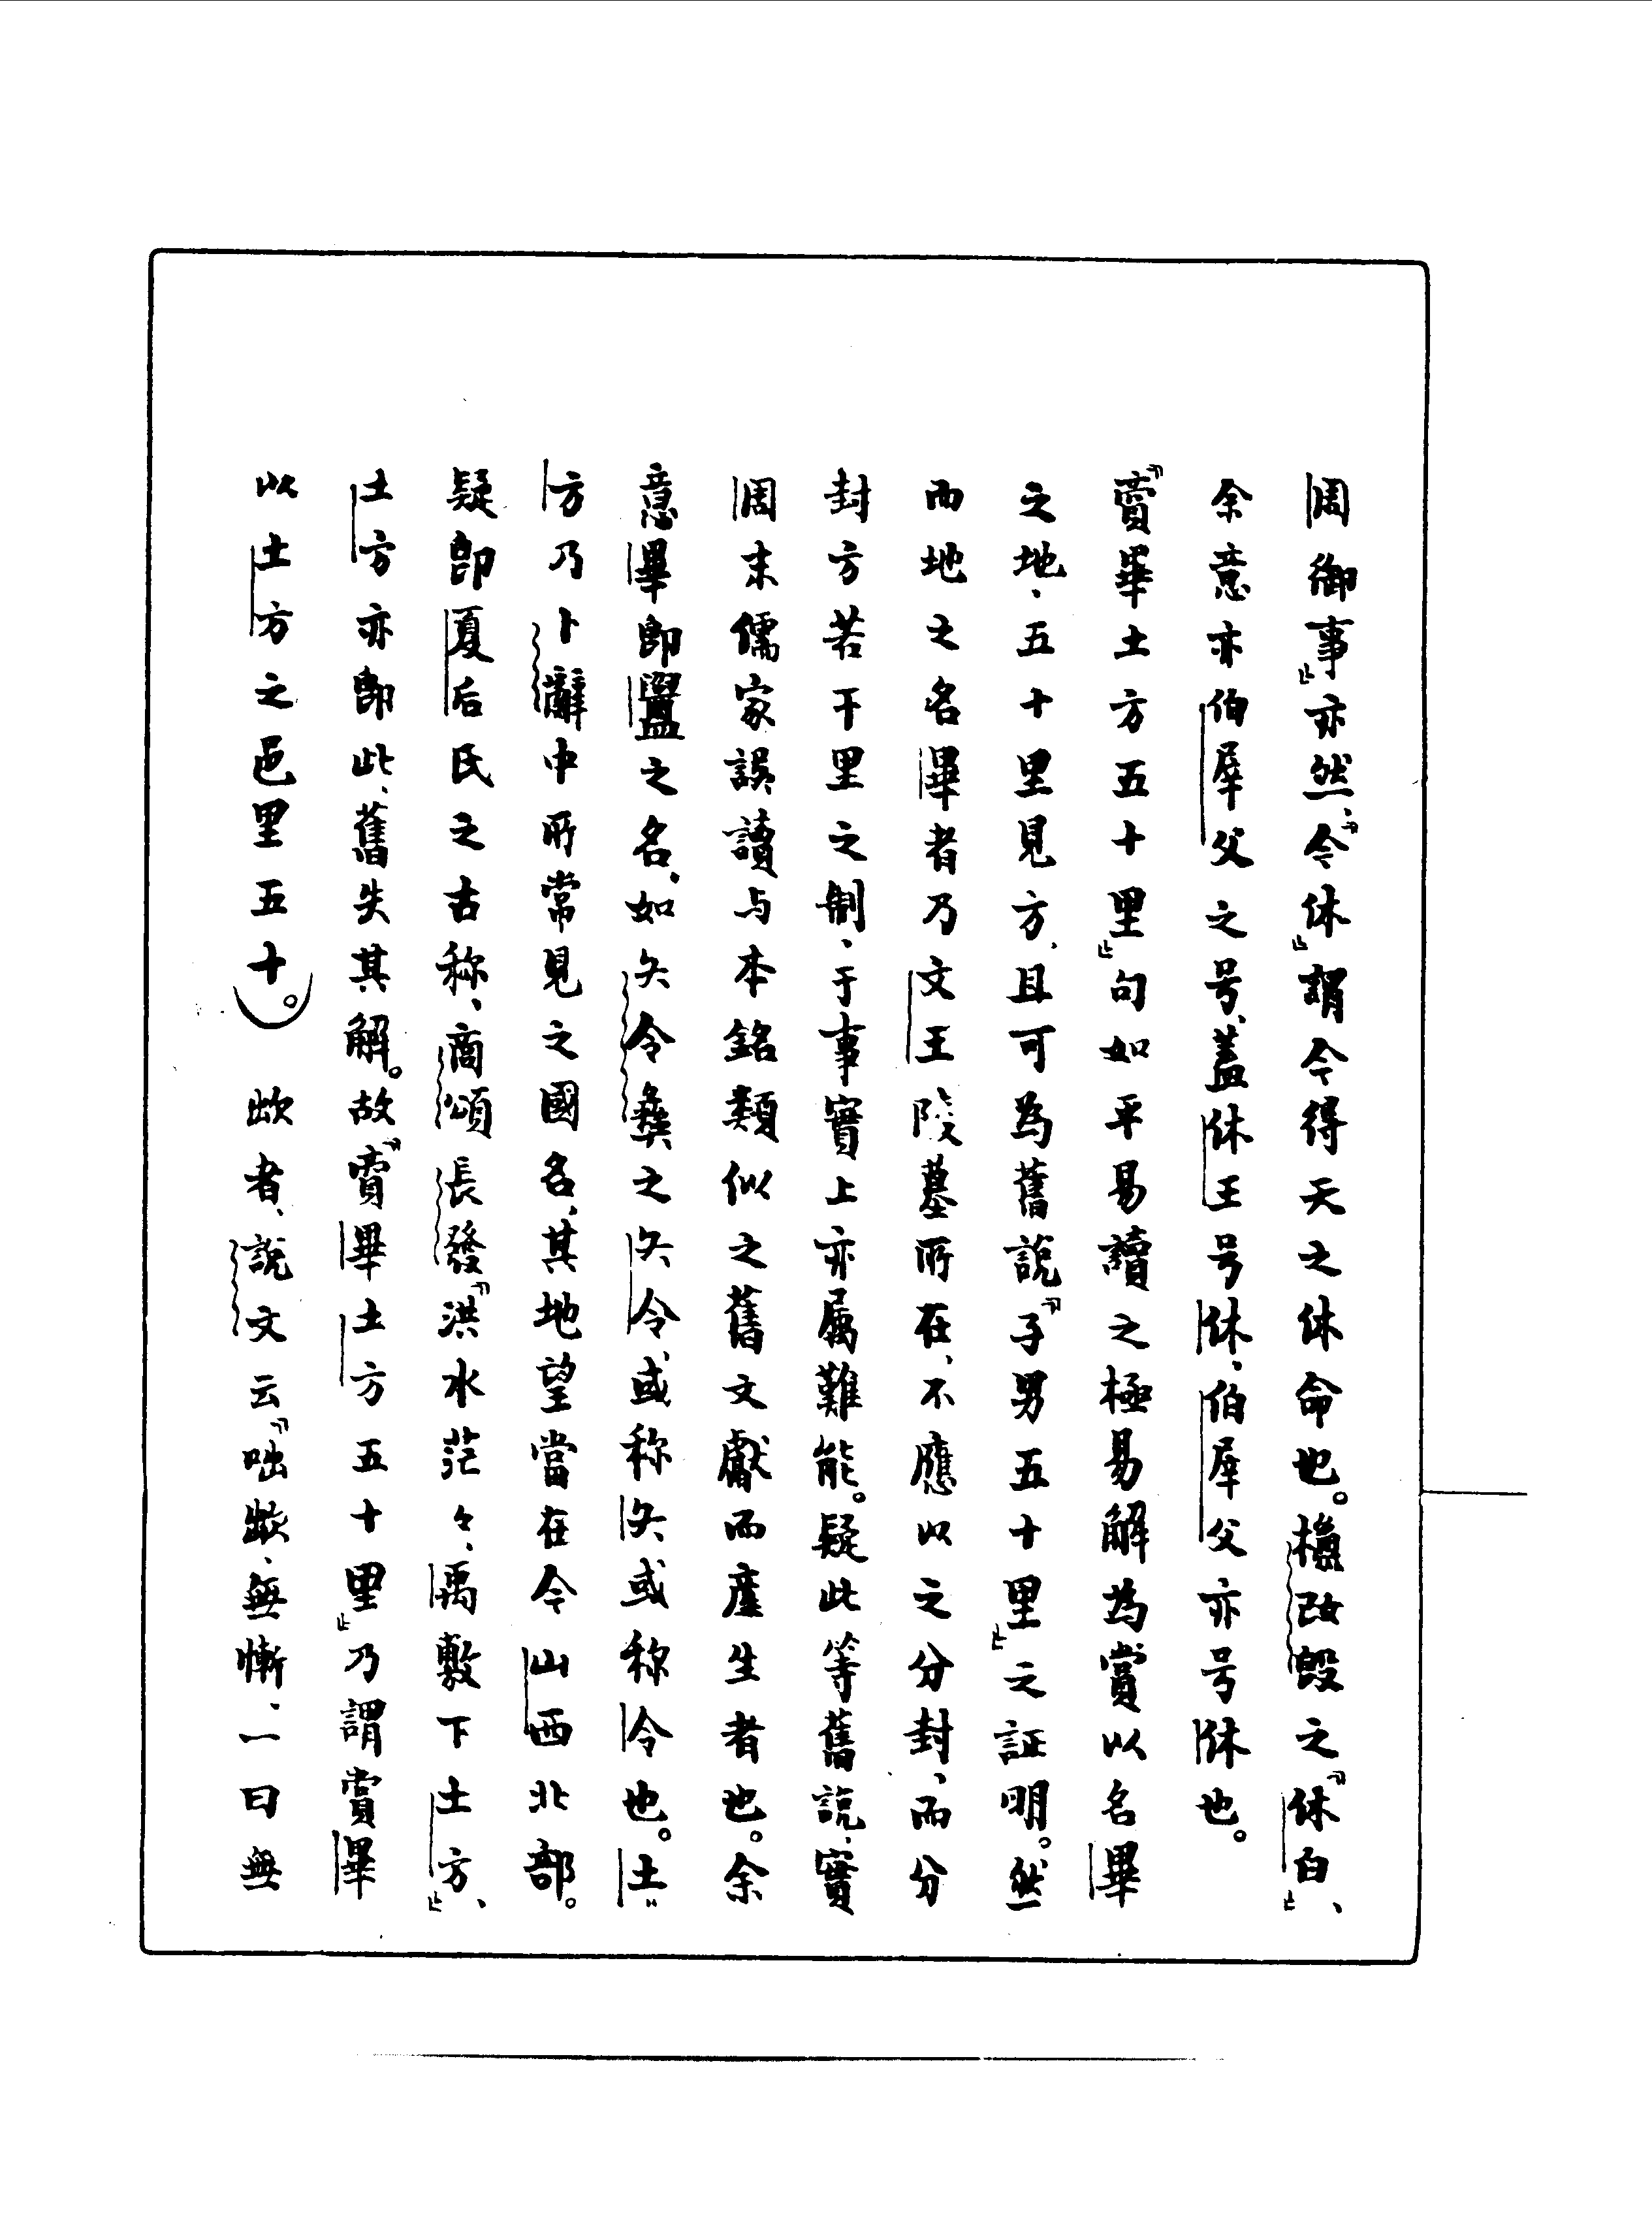 周御事」亦然、「令休」謂令得天之休命也。櫨改𣪘之「休白」、
余意亦伯犀父之号、蓋休王号休、伯犀父亦号休也。
「賣畢土方五十里」句如平易讀之極易解為賞以名畢
之地、五十里見方、且可為舊説「子男五十里」之証明。然
而地之名畢者乃文王陵墓所在、不應以之分封、而分
封方若干里之制、于事實上亦属難能。疑此等舊説、實
周末儒家誤讀与本銘類似之舊文獻而産生者也。余
意畢即𥃝之名、如矢令彝之矢令、或称矢或称令也。土
方乃卜辭中所常見之國名、其地望當在今山西北部。
疑即夏后氏之古称、商頌長發「洪水茫々、禹敷下土方、」
土方亦即此、舊失其解。故「賣畢土方五十里」乃謂賞畢
以土方之邑里五十。 歘者、説文云「咄歘、無慚、一曰無